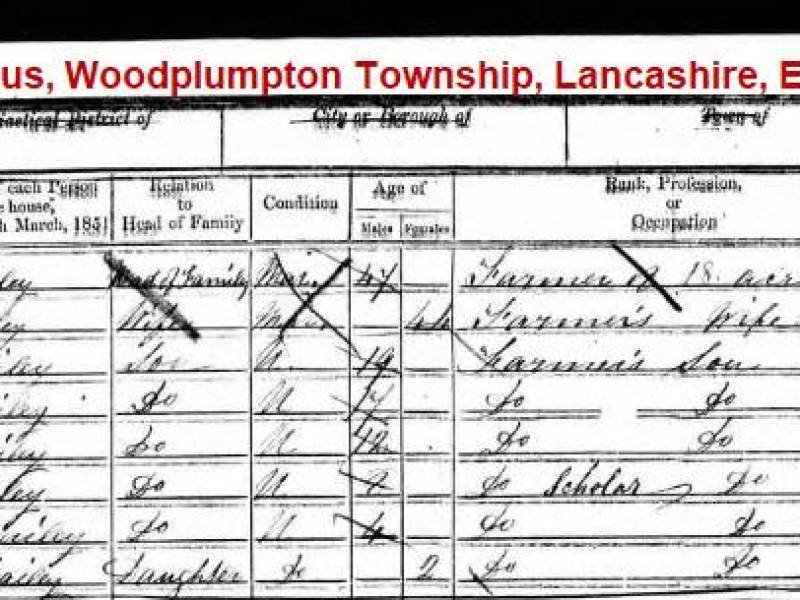 us, Woodplumpton Township, Lancashire, E
District of City or Borough of Town of
each Person Relation Condition Age of Rank, Profession,
house, to or
h March, 1851 Head of Family Males Females Occupation
ley Head of Family Mar. 47 Farmer of 18 acr
ley Wife Mar. 44 Farmer's Wife
iley Son U. 19 Farmer's Son
iley Do U 17 Do Do
iley Do U 12 Do Do
ley Do U Do Scholar Do
ailey Do U 4 Do Do
ailey Daughter Do 2 Do Do